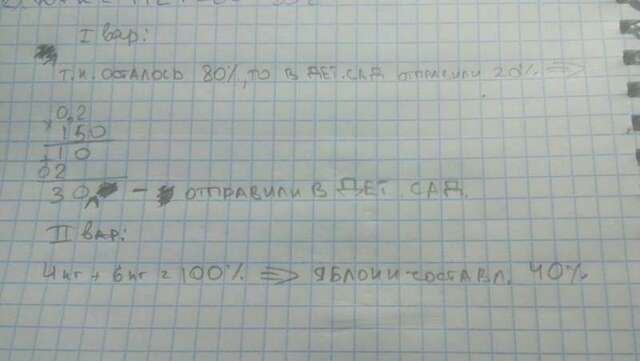 I вар:
Т.К. ОСТАЛОСЬ 80%, ТО В ДЕТ.САД ОТПРАВИЛИ 20% ⇒
0,2
× 150
+ 10
02
30 - ОТПРАВИЛИ В ДЕТ. САД.
II вар:
4 кг + 6 кг = 100% ⇒ ЯБЛОКИ СОСТАВЛ. 40%